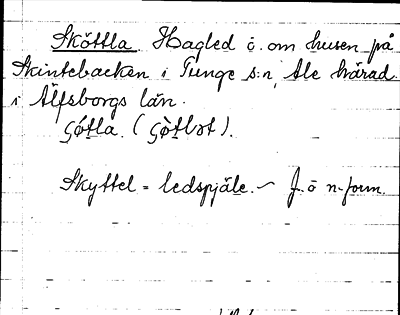 Sköttla. Hagled ö. om husen på
Skintebacken i Tunge s:n, Ale härad
i Älfsborgs län.
Gö́tla. (Gö̀tlət).
Skyttel = ledspjäle. ~ J. ö n-form.